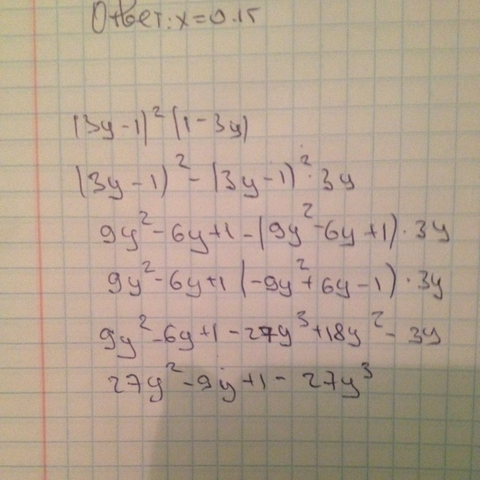 Ответ: x=0.15
(3y-1)²(1-3y)
(3y-1)²-(3y-1)²·3y
9y²-6y+1-(9y²-6y+1)·3y
9y²-6y+1(-9y²+6y-1)·3y
9y²-6y+1-27y³+18y²-3y
27y²-9y+1-27y³